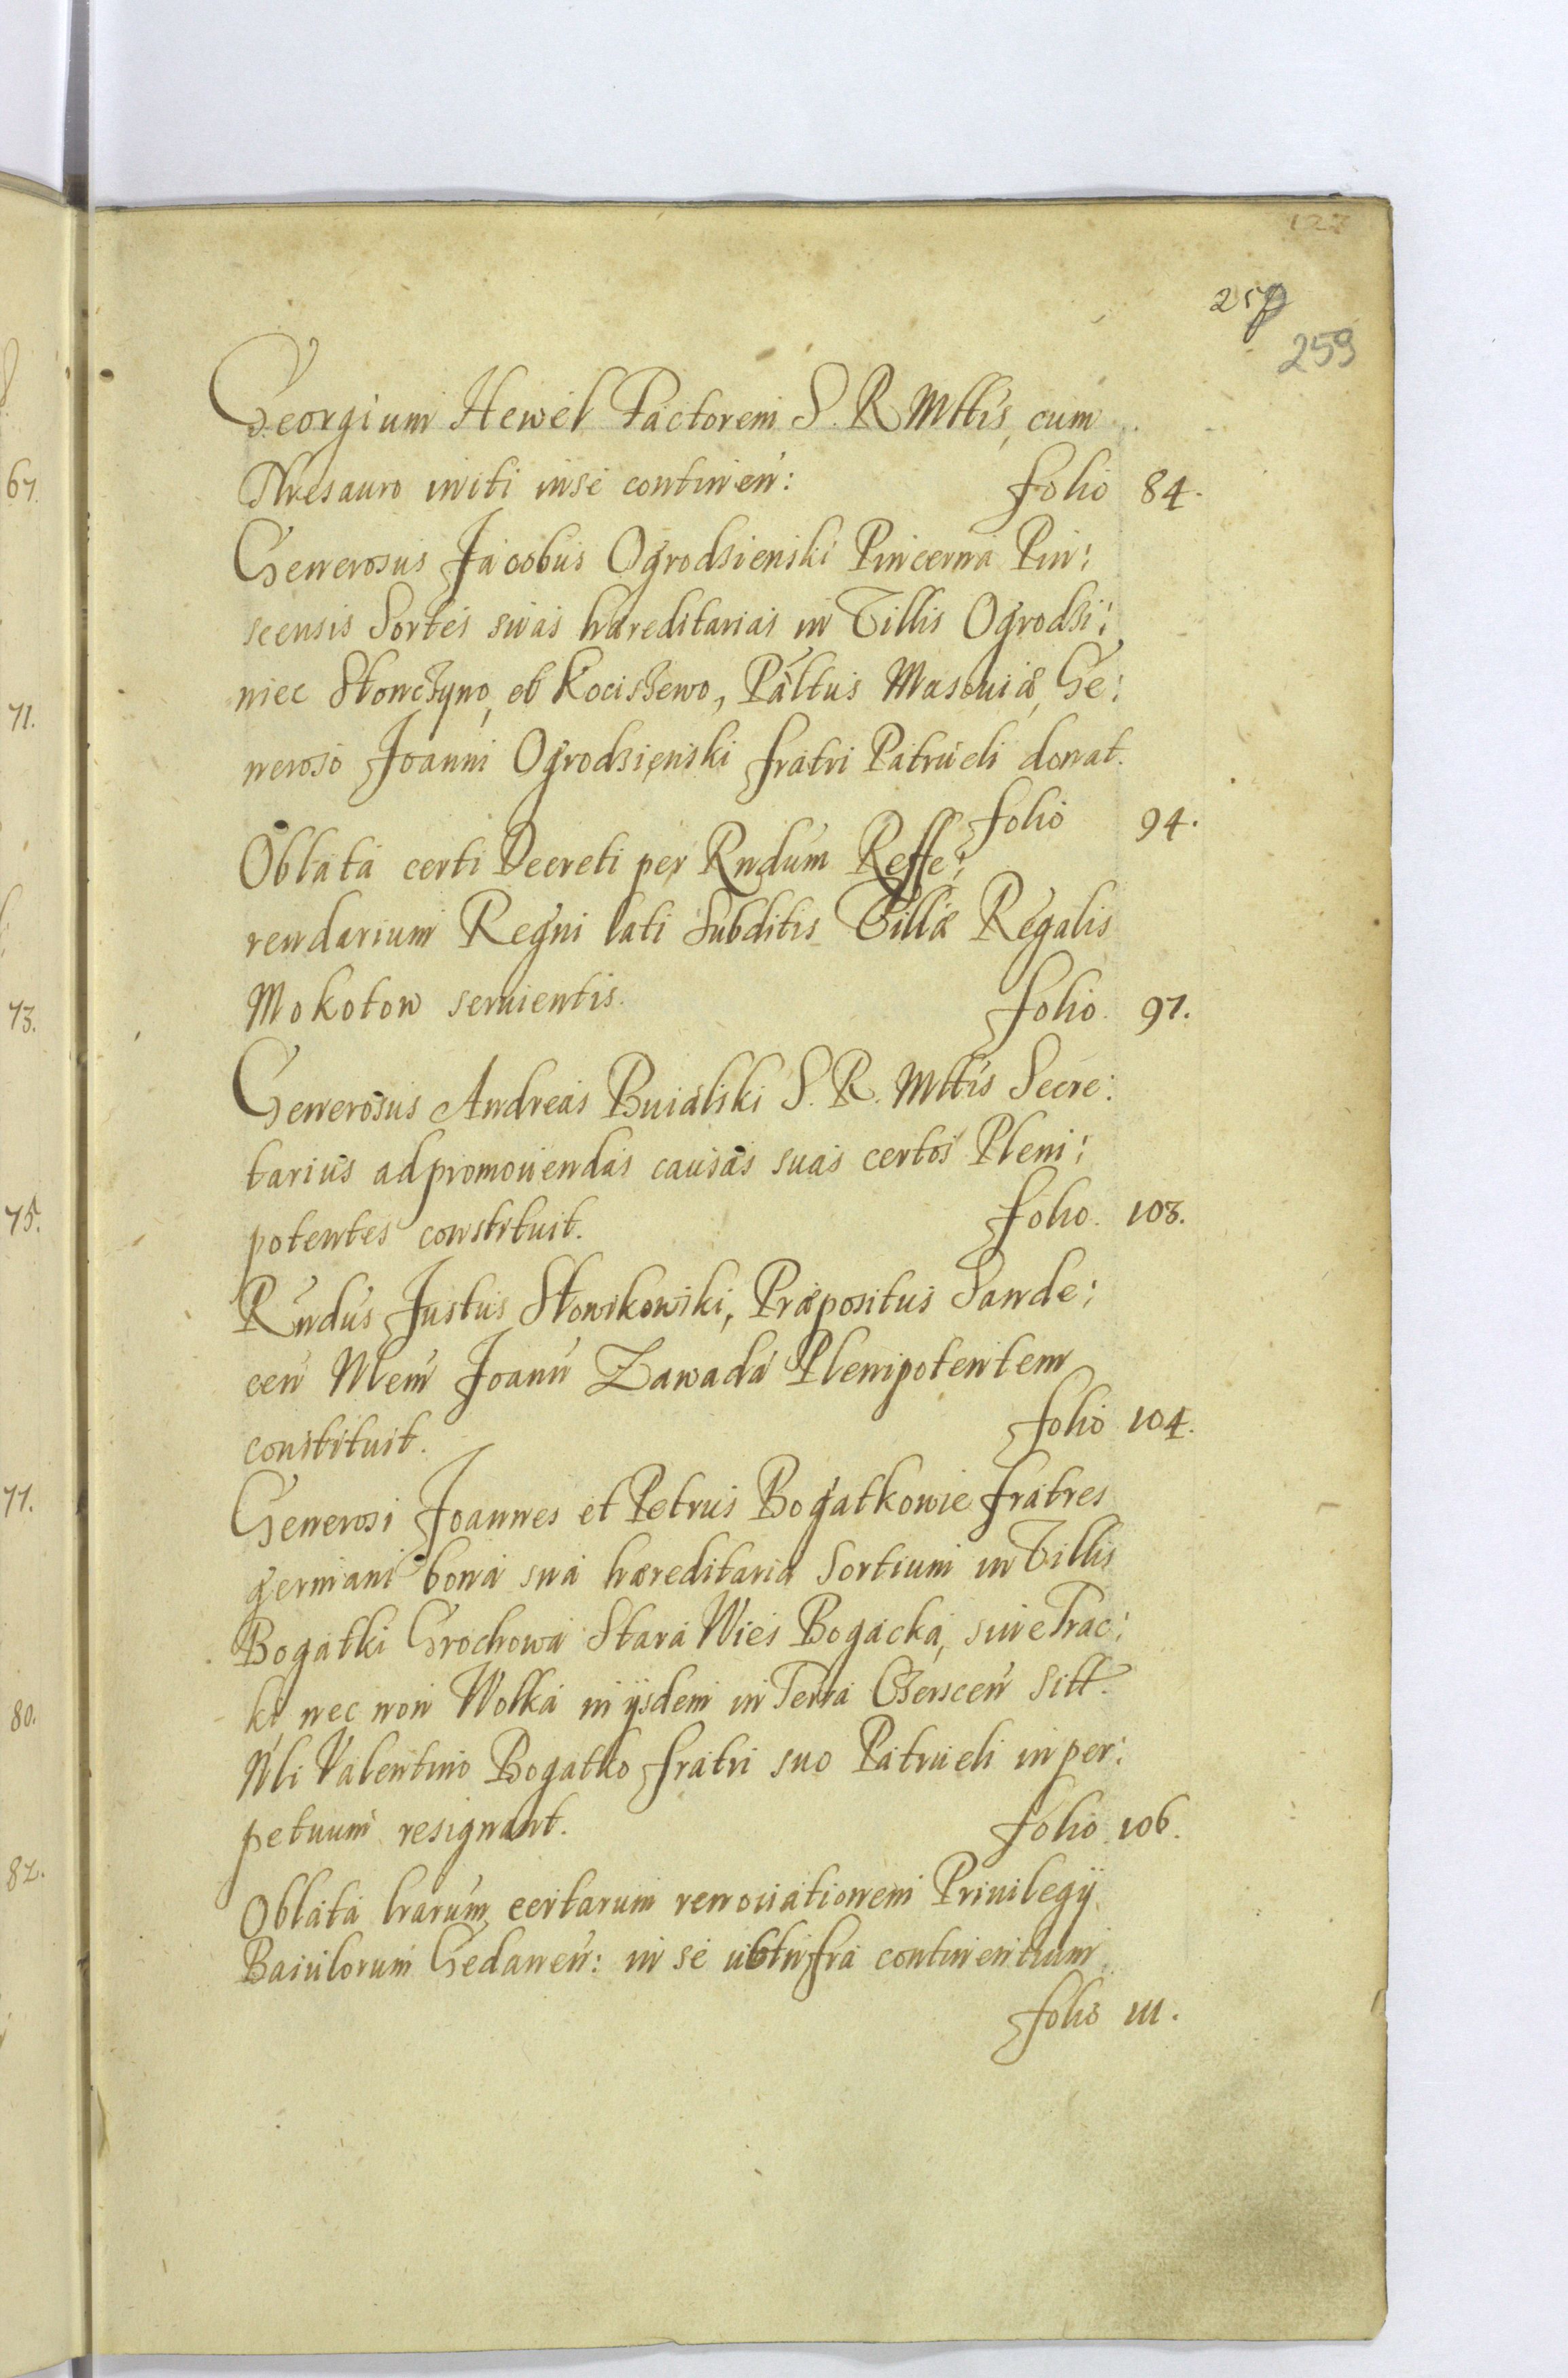 127
257
259
Georgium Hewel Factorem S. R Mttis, cum
Thresauro initi in se continen: folio 84.
Generosus Jacobus Ogrodzienski Pincerna Pin:
scensis Sortes suas hæreditarias in Villis Ogrodzi:
niec Stonczyno, et Kociszewo, Paltus Masouiæ, Ge:
neroso Joanni Ogrodzienski fratri Patrueli donat.
folio 94.
Oblata certi Decreti per Rndum Reffe:
rendarium Regni lati Subditis Villæ Regalis
Mokotow seruientis. folio. 97.
Generosus Andreas Buialski S. R. Mttis Secre:
tarius ad promouendas causas suas certos Pleni:
potentes constituit. folio. 103.
Rndus Justus Słowikowski, Præpositus Sande:
cen Mem Joann Zawada Plenipotentem
constituit. folio 104.
Generosi Joannes et Petrus Bogatkowie fratres
germani bona sua hæreditaria Sortium in Villis
Bogatki Grochowa Stara Wies Bogacka, siue Trac:
ki, nec non Wolka in ijsdem in Terra Czerscen sitt.
Nli Valentino Bogatko fratri suo Patrueli in per:
petuum resignant. folio 106.
Oblata lrarum certarum renouationem Priuilegij
Baiulorum Gedanen: in se ubt infra continentium
folio 111.
67.
71.
73.
75.
77.
80.
82.